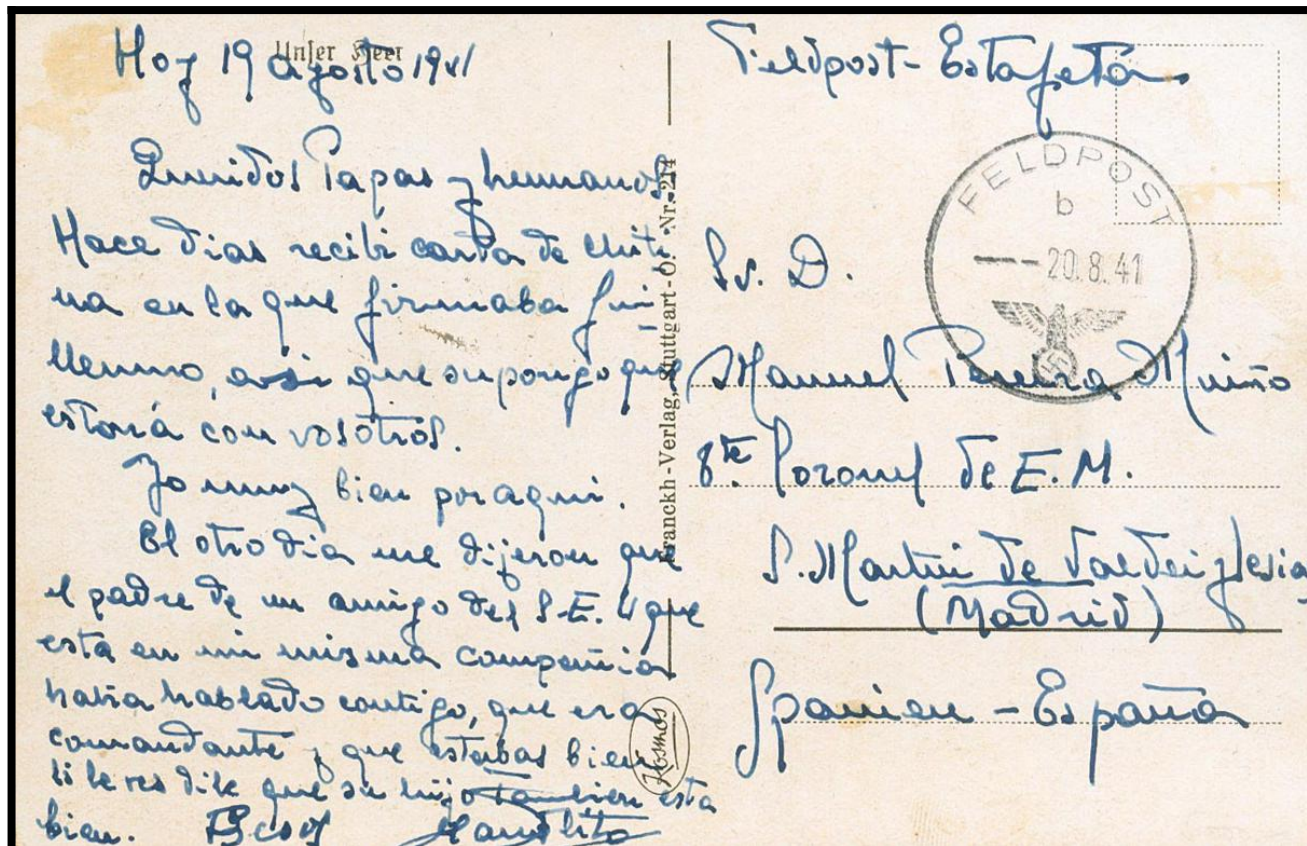 Unser Heer
Hoy 19 agosto 1941
Queridos Papas y hermanos
Hace dias recibi carta de Chiti
na en la que firmaba Gui
llermo, asi que supongo que
estará con vosotros.
Yo muy bien por aqui.
El otro dia me dijeron que
el padre de un amigo del S.E.U que
esta en mi misma compañia
habia hablado contigo, que era
comandante y que estabas bien
si le ves dile que su hijo tambien esta
bien. Besos Manolito
Franckh-Verlag, Stuttgart-O. Nr. 214
Kosmos
Feldpost - Estafeta
FELDPOST
b
20.8.41
Sr. D.
Manuel Pereira Muiño
Coronel de E.M.
S. Martin de Valdeiglesias
(Madrid)
Spanien - España